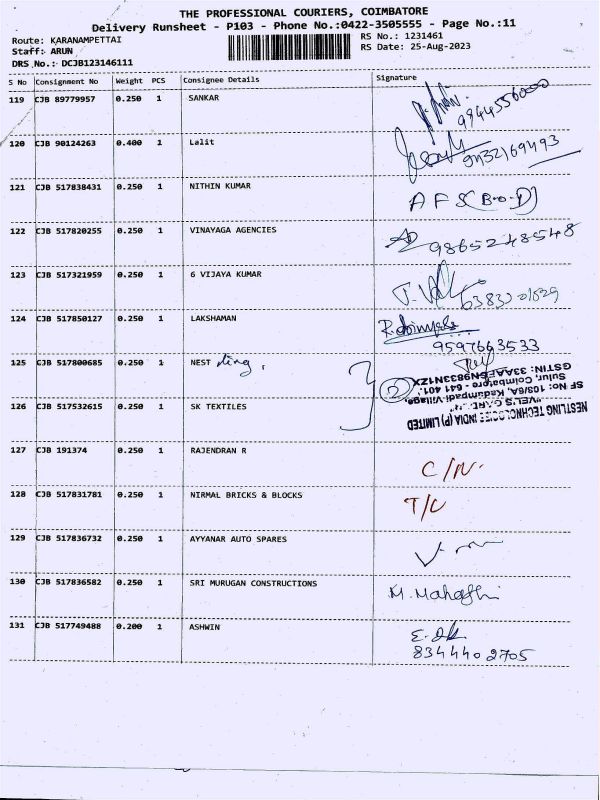 THE PROFESSIONAL COURIERS, COIMBATORE
Delivery Runsheet - P103 - Phone No.:0422-3505555 - Page No.:11
Route: KARANAMPETTAI RS No.: 1231461
Staff: ARUN RS Date: 25-Aug-2023
DRS No.: DCJB123146111
S No Consignment No Weight PCS Consignee Details Signature
119 CJB 89779957 0.250 1 SANKAR
9944556000
120 CJB 90124263 0.400 1 Lalit
9432169493
121 CJB 517838431 0.250 1 NITHIN KUMAR
A F S (B-O-D)
122 CJB 517820255 0.250 1 VINAYAGA AGENCIES
9865248548
123 CJB 517321959 0.250 1 6 VIJAYA KUMAR
124 CJB 517850127 0.250 1 LAKSHAMAN
9597663533
125 CJB 517800685 0.250 1 NEST ling,
2
126 CJB 517532615 0.250 1 SK TEXTILES
NESTLING TECHNOLOGIES INDIA (P) LIMITED
SF No: 108/6A, Kadampadi Village,
Sulur, Coimbatore - 641 401.
127 CJB 191374 0.250 1 RAJENDRAN R
C/N.
128 CJB 517831781 0.250 1 NIRMAL BRICKS & BLOCKS
129 CJB 517836732 0.250 1 AYYANAR AUTO SPARES
130 CJB 517836582 0.250 1 SRI MURUGAN CONSTRUCTIONS
131 CJB 517749488 0.200 1 ASHWIN
8344402705